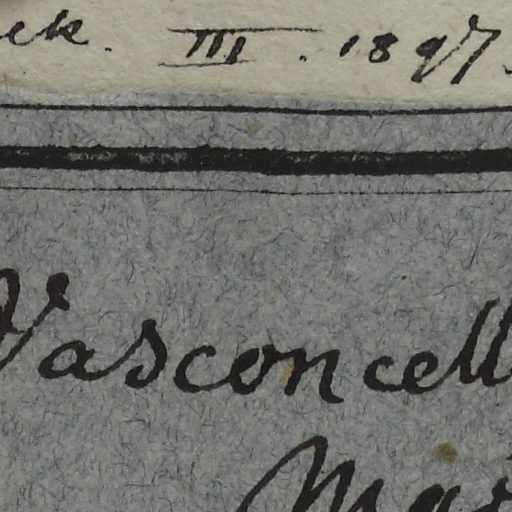 eck. III. 1897.
Vasconcell
Mar